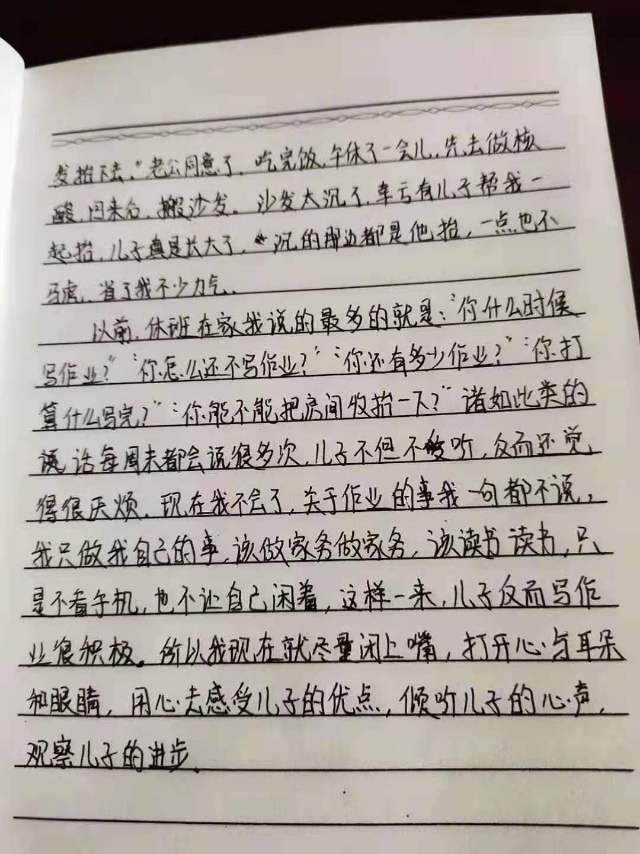 发抬下去。"老公同意了，吃完饭，午休了一会儿，先去做核
酸，回来后，搬沙发。沙发太沉了，幸亏有儿子帮我一
起抬，儿子真是长大了，沉的那边都是他抬，一点也不
马虎，省了我不少力气。
以前，休班在家我说的最多的就是："你什么时候
写作业？""你怎么还不写作业？""你还有多少作业？""你打
算什么写完？""你能不能把房间收拾一下？"诸如此类的
话每周末都会说很多次，儿子不但不听，反而还觉
得很厌烦。现在我不会了，关于作业的事我一句都不说，
我只做我自己的事，该做家务做家务，该读书读书，只
是不看手机，也不让自己闲着，这样一来，儿子反而写作
业很积极。所以我现在就尽量闭上嘴，打开心与耳朵
和眼睛，用心去感受儿子的优点，倾听儿子的心声，
观察儿子的进步。